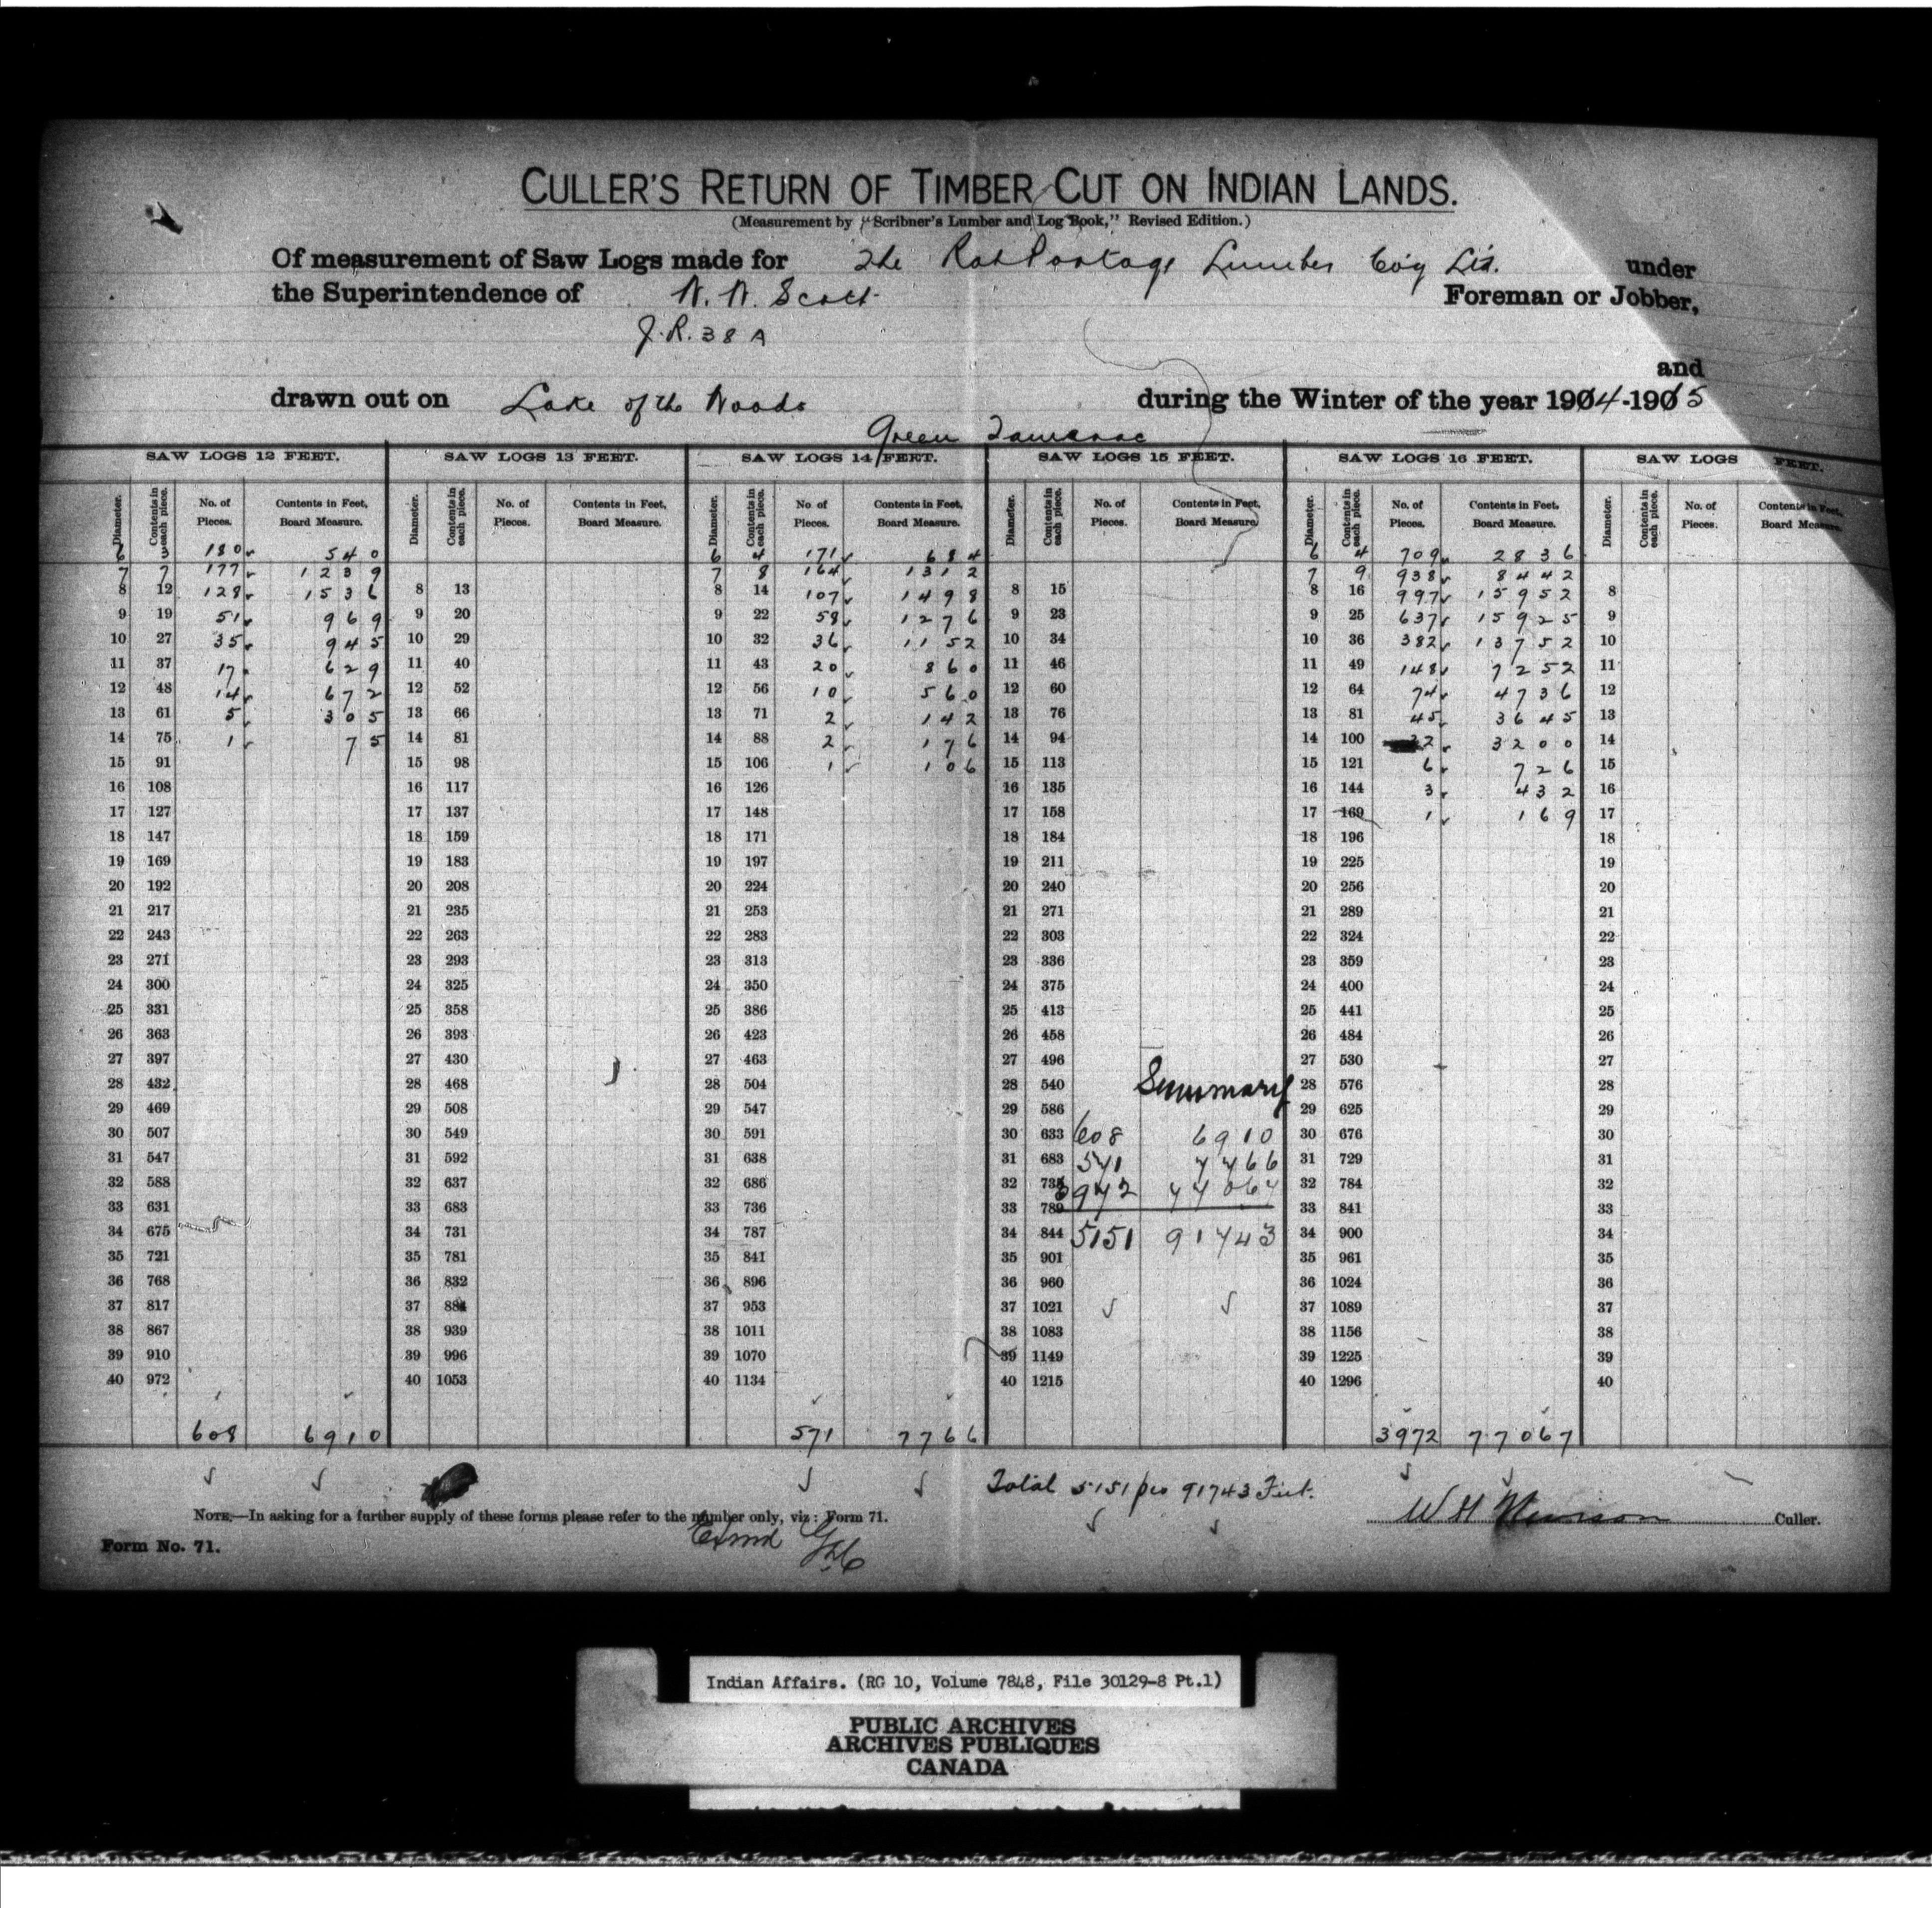 CULLER'S RETURN OF TIMBER CUT ON INDIAN LANDS.
(Measurement by "Scribner's Lumber and Log Book," Revised Edition.)
Of measurement of Saw Logs made for The Rat Portage Lumber Co'y Ltd. under
the Superintendence of N. N. Scott Foreman or Jobber,
J.R. 38 A
and
drawn out on Lake of the Woods during the Winter of the year 1904-1905
Green Tamarac
SAW LOGS 12 FEET. SAW LOGS 13 FEET. SAW LOGS 14 FEET. SAW LOGS 15 FEET. SAW LOGS 16 FEET. SAW LOGS FEET.
Diameter. Contents in each piece. No. of Pieces. Contents in Feet, Board Measure. Diameter. Contents in each piece. No. of Pieces. Contents in Feet, Board Measure. Diameter. Contents in each piece. No of Pieces. Contents in Feet, Board Measure. Diameter. Contents in each piece. No. of Pieces. Contents in Feet, Board Measure. Diameter. Contents in each piece. No. of Pieces. Contents in Feet, Board Measure. Diameter. Contents in each piece. No. of Pieces. Contents in Feet, Board Measure.
6 3 180 540 6 4 171 684 6 4 709 2836
7 7 177 1239 7 8 164 1312 7 9 938 8442
8 12 128 1536 8 13 8 14 107 1498 8 15 8 16 997 15952 8
9 19 51 969 9 20 9 22 58 1276 9 23 9 25 637 15925 9
10 27 35 945 10 29 10 32 36 1152 10 34 10 36 382 13752 10
11 37 17 629 11 40 11 43 20 860 11 46 11 49 148 7252 11
12 48 14 672 12 52 12 56 10 560 12 60 12 64 74 4736 12
13 61 5 305 13 66 13 71 2 142 13 76 13 81 45 3645 13
14 75 1 75 14 81 14 88 2 176 14 94 14 100 32 3200 14
15 91 15 98 15 106 1 106 15 113 15 121 6 726 15
16 108 16 117 16 126 16 135 16 144 3 432 16
17 127 17 137 17 148 17 158 17 169 1 169 17
18 147 18 159 18 171 18 184 18 196 18
19 169 19 183 19 197 19 211 19 225 19
20 192 20 208 20 224 20 240 20 256 20
21 217 21 235 21 253 21 271 21 289 21
22 243 22 263 22 283 22 303 22 324 22
23 271 23 293 23 313 23 336 23 359 23
24 300 24 325 24 350 24 375 24 400 24
25 331 25 358 25 386 25 413 25 441 25
26 363 26 393 26 423 26 458 26 484 26
27 397 27 430 27 463 27 496 27 530 27
28 432 28 468 28 504 28 540 Summary 28 576 28
29 469 29 508 29 547 29 586 29 625 29
30 507 30 549 30 591 30 633 608 6910 30 676 30
31 547 31 592 31 638 31 683 571 7766 31 729 31
32 588 32 637 32 686 32 735 3972 77067 32 784 32
33 631 33 683 33 736 33 789 33 841 33
34 675 34 731 34 787 34 844 5151 91743 34 900 34
35 721 35 781 35 841 35 901 35 961 35
36 768 36 832 36 896 36 960 36 1024 36
37 817 37 884 37 953 37 1021 37 1089 37
38 867 38 939 38 1011 38 1083 38 1156 38
39 910 39 996 39 1070 39 1149 39 1225 39
40 972 40 1053 40 1134 40 1215 40 1296 40
608 6910 571 7766 3972 77067
Total 5151 pcs 91743 Feet.
NOTE.—In asking for a further supply of these forms please refer to the number only, viz: Form 71.
W H Culler.
Form No. 71.
Indian Affairs. (RG 10, Volume 7848, File 30129-8 Pt.1)
PUBLIC ARCHIVES
ARCHIVES PUBLIQUES
CANADA